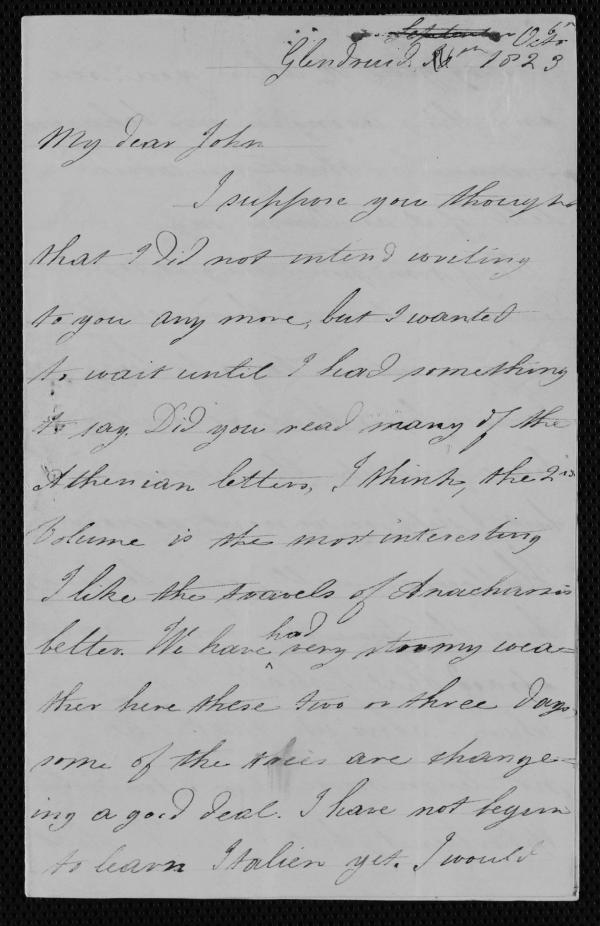 September Octr 6th
Glendruid. 1823
My dear John
I suppose you thought
that I did not intend writing
to you any more, but I wanted
to wait until I had something
to say. Did you read many of the
Athenian letters, I think, the 2nd
Volume is the most interesting
I like the travels of Anacharsis
better. We have had very stormy wea=
ther here these two or three days,
some of the trees are change=
ing a good deal. I have not begun
to learn Italien yet. I would